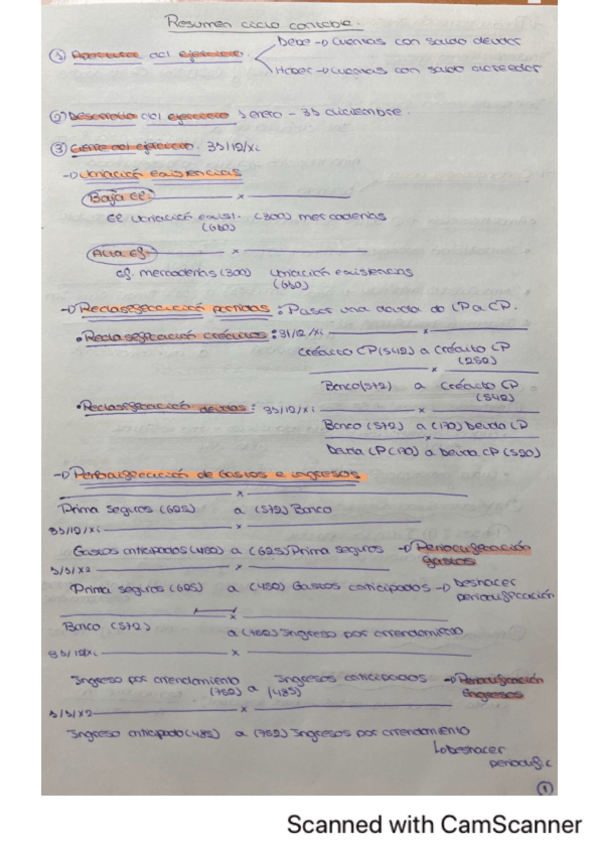 Resumen ciclo contable.
① Apertura del ejercicio. Debe → Cuentas con saldo deudor
Haber → Cuentas con saldo acreedor
② Desarrollo del ejercicio 1 enero - 31 diciembre.
③ Cierre del ejercicio. 31/12/Xi
→ Variación existencias
Baja EI. x
EI Variación exist. (300) mercaderías
(610)
Alta Ef. x
Ef. mercaderías (300) Variación existencias
(610)
→ Reclasificación partidas: Pasar una deuda de LP a CP.
• Reclasificación créditos: 31/12/Xi x
Crédito CP (542) a Crédito LP
(252)
x
Banco (572) a Crédito CP
(542)
• Reclasificación deudas: 31/12/Xi x
Banco (572) a (170) Deuda LP
x
Deuda LP (170) a Deuda CP (520)
→ Periodificación de Gastos e ingresos.
x
Prima seguros (625) a (572) Banco
31/12/Xi x
Gastos anticipados (480) a (625) Prima seguros → Periodificación
gastos
1/1/X2 x
Prima seguros (625) a (480) Gastos anticipados → Deshacer
periodificación
x
Banco (572) a (752) Ingreso por arrendamiento
31/12/Xi x
Ingreso por arrendamiento Ingresos anticipados → Periodificación
(752) a (485) Ingresos
1/1/X2 x
Ingreso anticipado (485) a (752) Ingresos por arrendamiento
↳ Deshacer
periodific
①
Scanned with CamScanner